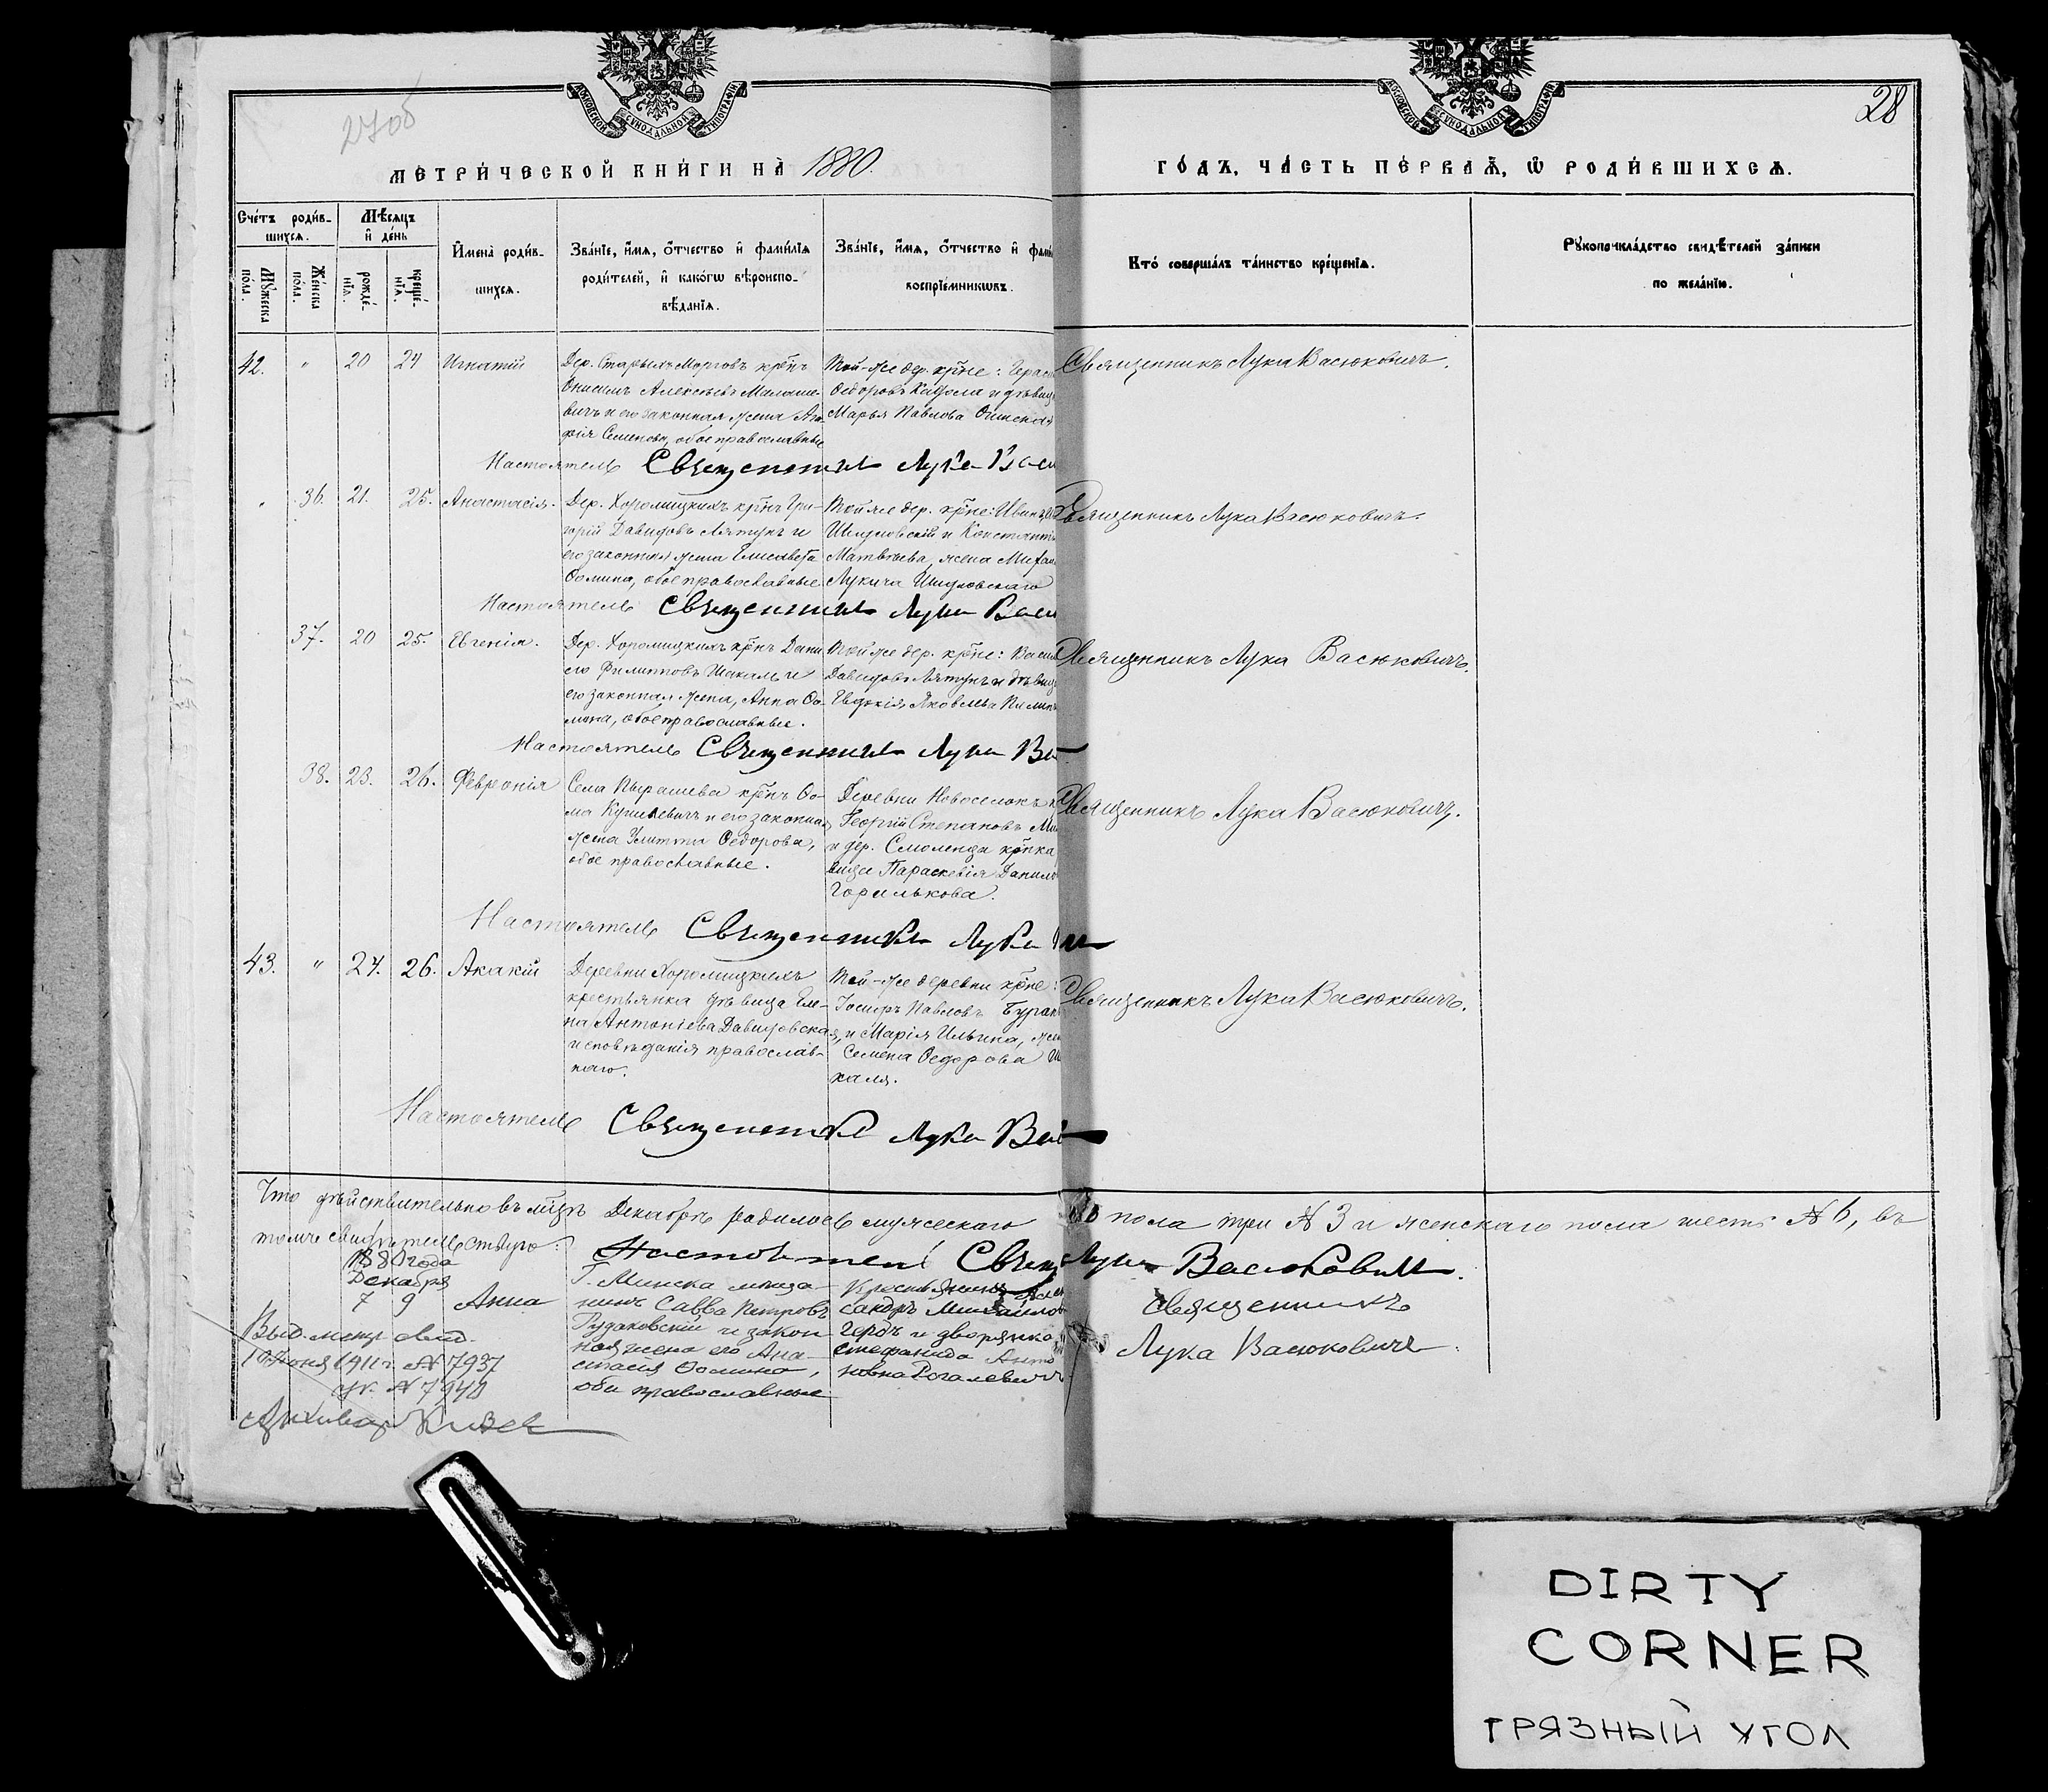 2706
28
МОСКОВСКОЙ СѴНОДАЛЬНОЙ ТИПОГРАФІИ
МОСКОВСКОЙ СѴНОДАЛЬНОЙ ТИПОГРАФІИ
МЕТРИ́ЧЕСКОЙ КНИ́ГИ НА̀ 1880.
ГО́ДЪ, ЧА́СТЬ ПЕ́РВАѦ, Ѡ҆ РОДИ́ВШИХСѦ.
Сче́тъ роди́в-
шихсѧ.
Мѣ́сѧцъ
и҆ де́нь
Мꙋ́жеска по́ла.
Же́нска по́ла.
рожде́-
нїѧ.
креще́-
нїѧ.
И҆мена̀ роди́в-
шихсѧ.
Зва́нїе, и҆́мѧ, ѻ҆́тчество и҆ фамѝлїѧ
роди́телей, и҆ како́гѡ вѣ́роиспо-
вѣ́данїѧ.
Зва́нїе, и҆́мѧ, ѻ҆́тчество и҆ фами
воспрїе́мникѡвъ.
Кто̀ соверша́лъ та́инство креще́нїѧ.
Рꙋкоприкла́дство свидѣ́телей за́писи
по жела́нїю.
42. " 20 24 Игнатій
Дер. Старыхъ Морговъ крнъ
Онисимъ Алексѣевъ Малаше-
вичъ и его законная жена Ага-
фія Семенова, обое православные
Той-же дер. крне: Герас
Ѳедоровъ Кадола и дѣвиц
Марья Павлова
Священникъ Лука Васюковичъ.
Настоятель Священникъ Лука Васю
" 36. 21. 25. Анастасія.
Дер. Хоромицкихъ крнъ Гри-
горій Давидовъ Лятунъ и
его законная жена Елисавета
Ѳомина, обое православные
Той же дер. крне: Иванъ
Шидловскій и Констант
Матвѣева, жена Михаи
Лукича Шидловскаго
Священникъ Лука Васюковичъ.
Настоятель Священникъ Лука Васю
37. 20 25. Евгенія.
Дер. Хоромицкихъ крнъ Дани
его Филипповъ Шакаль и
его законная жена, Анна Ѳо-
мина, обое православные.
Той же дер. крне: Васил
Давидовъ Лятунъ и дѣвиц
Евдокія Яковлева
Священникъ Лука Васюковичъ.
Настоятель Священникъ Лука Ва
38. 23. 26. Февронія
Села Пырашева крнъ Ѳо-
ма и его законная
жена Улитта Ѳедорова,
обое православные.
Деревни Новоселокъ
Георгій Степановъ
и дер. Смоленца крнка
вица Параскевія Данил
Горилькова.
Священникъ Лука Васюковичъ.
Настоятель Священникъ Лука
43. " 24. 26. Акакій
Деревни Хоромицкихъ
крестьянка дѣвица Еле-
на Антоніева Давидовская
исповѣданія православ-
наго.
Той-же деревни крне:
Іосифъ Павловъ Буран
и Марія Ильина, жен
Семена Ѳедорова Ша
каля.
Священникъ Лука Васюковичъ.
Настоятель Священникъ Лука Ва
Что дѣйствительно въ мцѣ Декабрѣ родилось мужескаго пола три № 3 и женскаго пола шесть № 6, въ
томъ свидѣтельствую: Настоятель Свящ Лука Васюковичъ.
1880 года
Декабря
7 9 Анна
Г. Минска мѣща-
нинъ Савва Петровъ
Рудаковскій и закон
ная жена его Ана-
стасія Ѳомина,
оба православные
Крестьянинъ Алек
сандръ Михайлов
Гердъ и дворянка
Стефанида Анто
новна Рогалевичъ
Священникъ
Лука Васюковичъ.
Выд. метр. свид.
10 Іюня 1911 г. № 7937
№ 7940
Архиваріус
DIRTY
CORNER
ГРЯЗНЫЙ УГОЛ